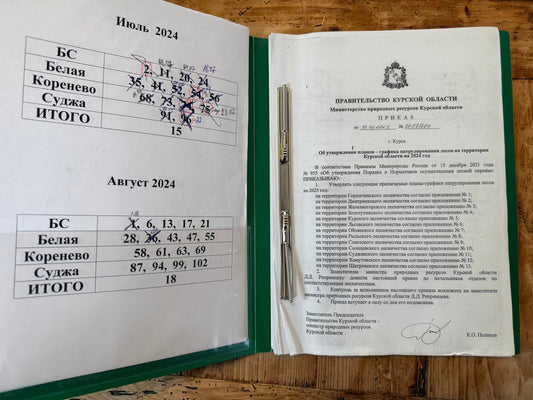 Июль 2024
БС
Белая 2, 11, 20, 24
Коренево 35, 41, 52, 54, 56
Суджа 68, 73, 75
ИТОГО 91, 96
15
Август 2024
БС 1, 6, 13, 17, 21
Белая 28, 36, 43, 47, 55
Коренево 58, 61, 63, 69
Суджа 87, 94, 99, 102
ИТОГО 18
ПРАВИТЕЛЬСТВО КУРСКОЙ ОБЛАСТИ
Министерство природных ресурсов Курской области
ПРИКАЗ
от №
г. Курск
Об утверждении планов – графика патрулирования лесов на территории
Курской области на 2024 год
В соответствии Приказа Минприроды России от 15 декабря 2021 года
№ 955 «Об утверждении Порядка и Нормативов осуществления лесной охраны»
ПРИКАЗЫВАЮ:
1. Утвердить следующие прилагаемые планы-графики патрулирования лесов
на 2023 год:
на территории Горшеченского лесничества согласно приложению № 1;
на территории Дмитриевского лесничества согласно приложению № 2;
на территории Железногорского лесничества согласно приложению № 3;
на территории Золотухинского лесничества согласно приложению № 4;
на территории Курского лесничества согласно приложению № 5;
на территории Льговского лесничества согласно приложению № 6;
на территории Обоянского лесничества согласно приложению № 7;
на территории Рыльского лесничества согласно приложению № 8;
на территории Советского лесничества согласно приложению № 9;
на территории Солнцевского лесничества согласно приложению № 10;
на территории Суджанского лесничества согласно приложению № 11;
на территории Хомутовского лесничества согласно приложению № 12;
на территории Щигровского лесничества согласно приложению № 13.
2. Заместителю министра природных ресурсов Курской области
Д.Д. Репринцеву довести настоящий приказ до начальников отделов по
соответствующим лесничествам.
3. Контроль за исполнением настоящего приказа возложить на заместителя
министра природных ресурсов Курской области Д.Д. Репринцева.
4. Приказ вступает в силу со дня его подписания.
Заместитель Председателя
Правительства Курской области -
министр природных ресурсов
Курской области К.О. Поляков